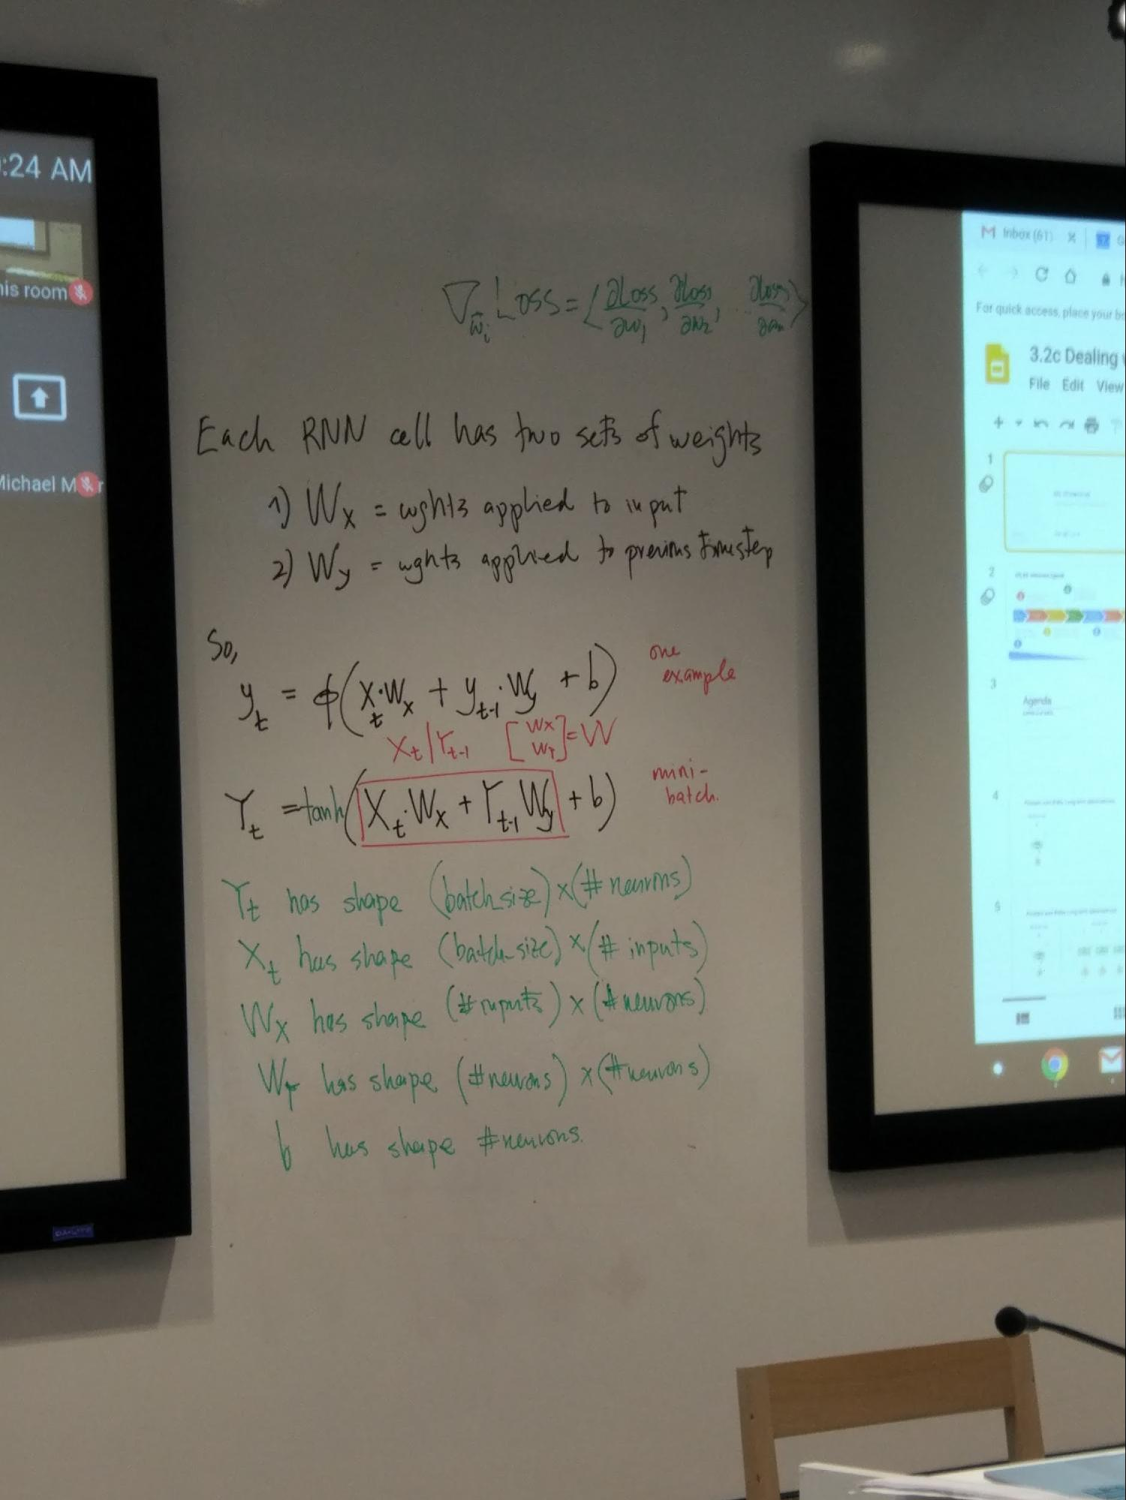 :24 AM
his room
Michael M r
∇w⃗ᵢ Loss = ⟨∂Loss/∂w₁, ∂Loss/∂w₂, ∂Loss/∂wₙ⟩
Each RNN cell has two sets of weights
1) Wx = wghts applied to input
2) Wy = wghts applied to previous timestep
So,
y_t = ϕ(x_t·Wx + y_t-1·Wy + b) one example
X_t | Y_t-1 [Wx Wy] = W
Y_t = tanh(X_t·Wx + Y_t-1 Wy + b) mini-batch.
Y_t has shape (batch_size) x (# neurons)
X_t has shape (batch_size) x (# inputs)
Wx has shape (# inputs) x (# neurons)
Wy has shape (# neurons) x (# neurons)
b has shape # neurons.
Inbox (61) X
For quick access, place your b
3.2c Dealing
File Edit View
1
2
3
Agenda
4
5